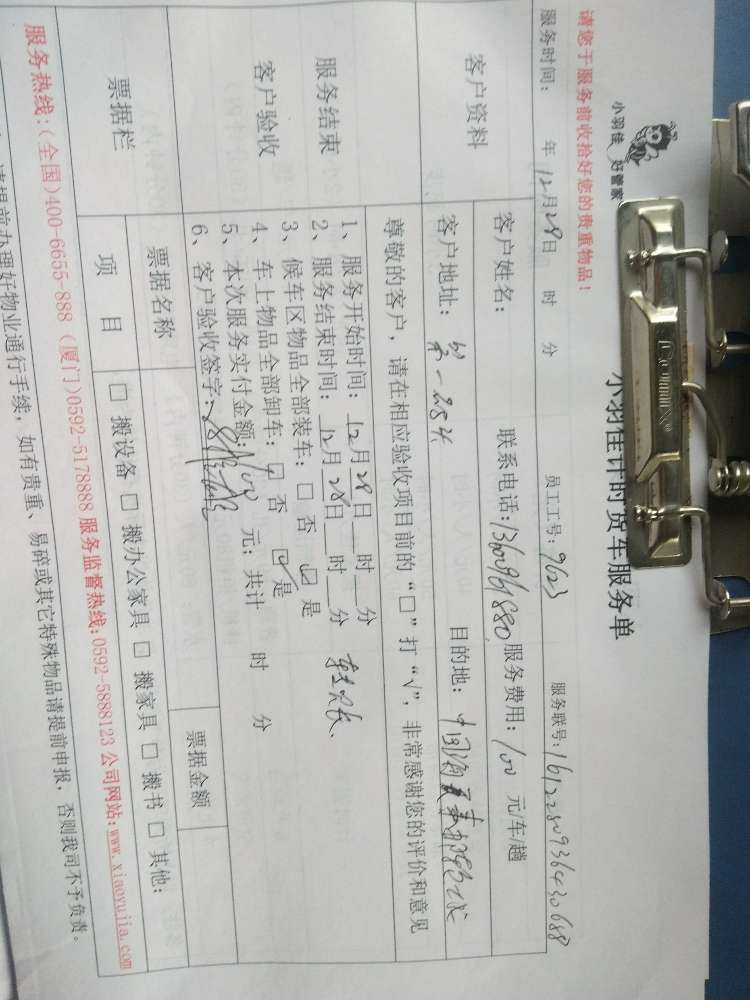 小羽佳 好管家
小羽佳计时货车服务单
请您于服务前收拾好您的贵重物品！
服务时间： 年 12月28日 时 分 员工工号：9623 服务联号：1612280936430688
客户资料
客户姓名： 联系电话： 服务费用：100 元/车/趟
客户地址： 目的地：中国
尊敬的客户，请在相应验收项目前的“□”打“√”，非常感谢您的评价和意见
服务结束
客户验收
1、服务开始时间：12月28日 时 分
2、服务结束时间：12月28日 时 分
3、候车区物品全部装车：□ 否 ☑ 是
4、车上物品全部卸车：□ 否 ☑ 是
5、本次服务实付金额：100 元；共计 时 分
6、客户验收签字：
票据栏
票据名称 票据金额
项 目 □ 搬设备 □ 搬办公家具 □ 搬家具 □ 搬书 □ 其他：
服务热线：(全国)400-6655-888 (厦门)0592-5178888 服务监督热线：0592-5888123 公司网站：www.xiaoyujia.com
请提前办理好物业通行手续，如有贵重、易碎或其它特殊物品请提前申报，否则我司不予负责。